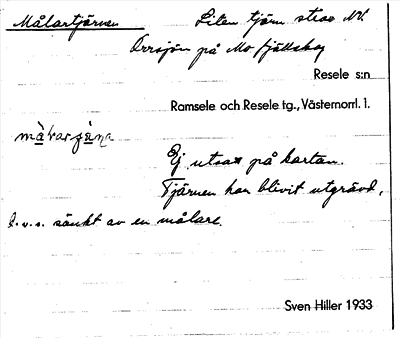 Målartjärnen Liten tjärn strax NV.
Orrsjön på Mo fjällskog
Resele s:n
Ramsele och Resele tg., Västernorrl. l.
Ej utsatt på kartan.
Tjärnen har blivit utgrävd,
d.v.s. sänkt av en målare.
Sven Hiller 1933